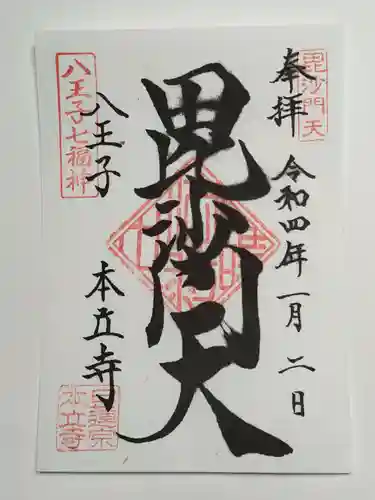 奉拝
毘沙門天
令和四年一月二日
毘沙門天
八王子七福神
八王子
本立寺
日蓮宗
本立寺